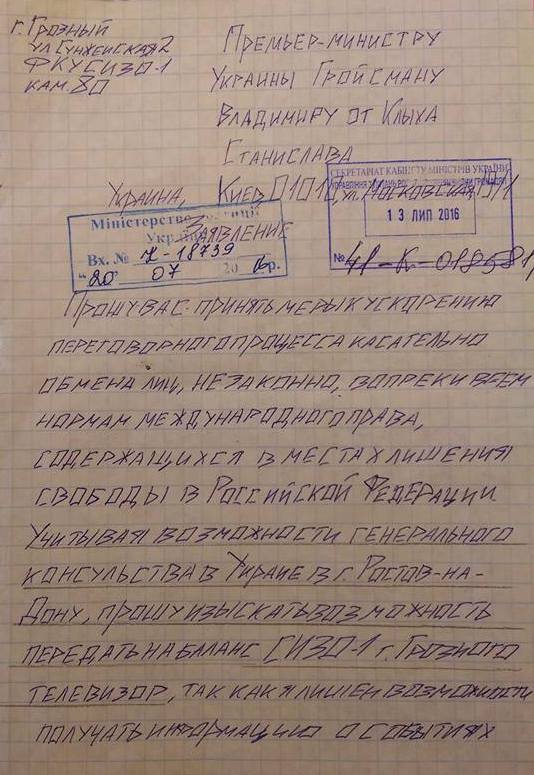 г. Грозный
ул Сунженская 2
ФКУ СИЗО-1
кам. 80
Премьер-министру
Украины Гройсману
Владимиру от Клыха
Станислава
Украина, Киев, 0101, ул. Московская,
СЕКРЕТАРІАТ КАБІНЕТУ МІНІСТРІВ УКРАЇНИ
13 ЛИП 2016
№ 41-К-018581/
Міністерство юстиції
України
Вх. № К-18739
"20" 07 20 16 р.
Заявление
Прошу вас принять меры к ускорению
переговорного процесса касательно
обмена лиц, незаконно, вопреки всем
нормам международного права,
содержащихся в местах лишения
свободы в Российской Федерации
Учитывая возможности генерального
консульства в Украие в г. Ростов-на-
Дону, прошу изыскать возможность
передать на баланс СИЗО-1 г. Грозного
телевизор, так как я лишен возможности
получать информацию о событиях